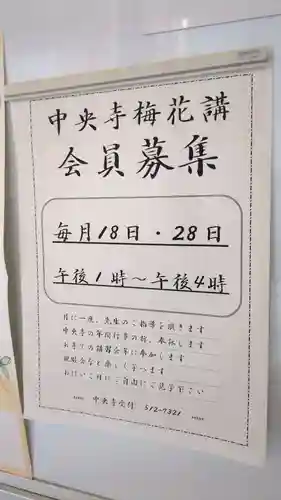 中央寺梅花講
会員募集
毎月18日・28日
午後1時～午後4時
月に一度、先生のご指導を頂きます
中央寺の年間行事の時、奉詠します
お寺での講習会等に参加します
親睦会など楽しく予ってます
お気軽に ご自由にご見学下さい
中央寺受付 512-7321